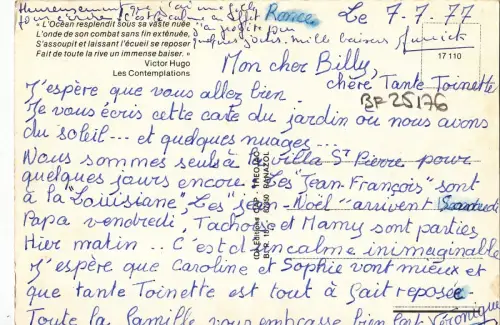 Heureusement que j'ai une
j'ai profité pour
quelques jours mille baisers
"L'Océan resplendit sous sa vaste nuée
L'onde de son combat sans fin exténuée,
S'assoupit et laissant l'écueil se reposer
Fait de toute la rive un immense baiser."
Victor Hugo
Les Contemplations
Le 7.7.77
17 110
Mon cher Billy,
chère Tante Toinette
BF 25176
J'espère que vous allez bien.
Je vous écris cette carte du jardin où nous avons
du soleil... et quelques nuages...
Nous sommes seuls à la villa St Pierre pour
quelques jours encore. Les "Jean-François" sont
à la "Louisiane", Les "Jean-Noël" arrivent Samedi
Papa vendredi, Tachou et Mamy sont parties
Hier matin... C'est d'un calme inimaginable
J'espère que Caroline et Sophie vont mieux et
que tante Toinette est tout à fait reposée
Toute la famille vous embrasse bien fort Véronique